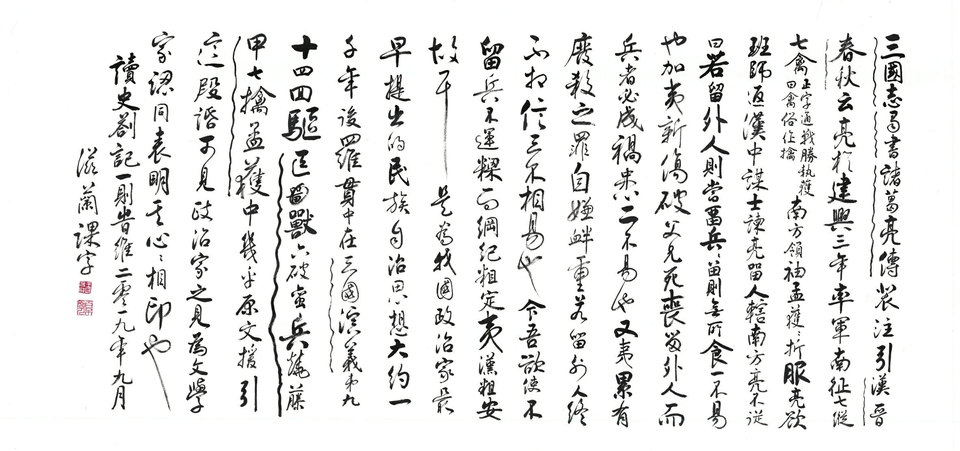 三國志蜀書諸葛亮傳裴注引漢晉
春秋云亮於建興三年率軍南征七縱
七禽正字通戰勝執獲曰禽俗作擒南方領袖孟獲獲折服亮欲
班師返漢中謀士諫亮留人轄南方亮不從
曰若留外人則當留兵兵留則無所食一不易
也加夷新傷破父兄死喪留外人而
兵者必成禍患二不易也又夷累有
廢殺之罪自嫌衅重若留外人終
不相信三不相易也今吾欲使不
留兵不運糧而綱紀粗定夷漢粗安
故耳——是為我國政治家最
早提出的民族自治思想大約一
千年後羅貫中在三國演義第九
十四回驅巨獸六破蠻兵燒藤
甲七擒孟獲中幾乎原文援引
這段話可見政治家之見為文學
家認同表明其心心相印也
讀史劄記一則時維二零一九年九月
滋蘭課字